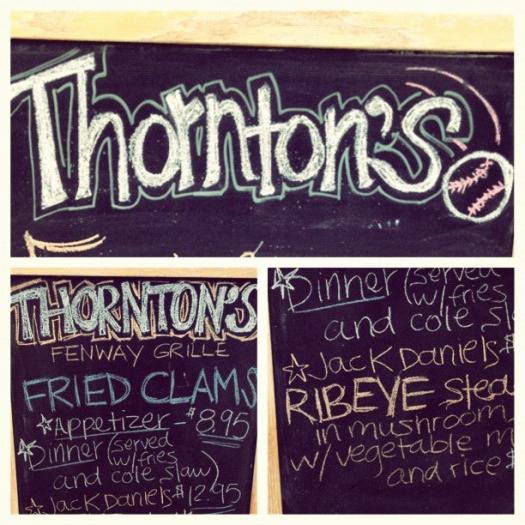 Thornton's
THORNTON'S
FENWAY GRILLE
FRIED CLAMS
Appetizer - $8.95
Dinner (served
w/fries
and cole slaw)
Jack Daniels $12.95
Dinner (served
w/fries
and cole slaw
Jack Daniels $
RIBEYE Stea
in mushroom
w/vegetable m
and rice $